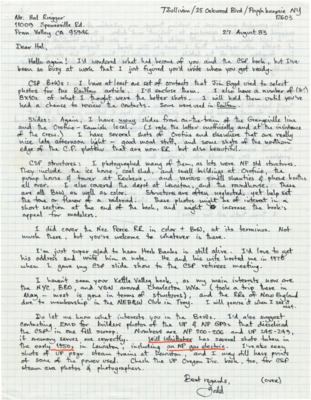 Mr. Hal Riegger
Penn Valley CA 95946
27 August 83
Dear Hal,
Hello again! I'd wondered what had become of you and the CSP book, but I've
been so busy at work that I just figured you'd write when you got ready.
CSP B&Ws: I have at least one set of contacts that Jim Boyd used to select
photos for the Railfan article. I'll enclose them. I also have a number of
8x10s of what I thought were the better shots. I will hold them until you've
had a chance to review the contacts. Some were used in Railfan.
Slides: Again, I have many slides from on-the-train of the Grangeville line
and the Orofino - Kamiah local.
the crew.) I have several shots of Orofino and elsewhere that are really
nice late afternoon light - good mood stuff, and some shots of the northern
edge of the C.P. plateau that are non RR, but also beautiful.
CSP structures: I photographed many of them, as lots were NP std structures.
They include the ice house, coal shed, and small buildings at Orofino, the
pump house & tower at Reubens, and various small shanties & phone booths
all over. I also covered the depot at Lewiston, and the roundhouse. These
are all B&W as well as color. Structures are often neglected, yet help set
the tone or flavor of a railroad. These photos might be of interest in a
short section at the end of the book, and might increase the book's
appeal for modelers.
I did cover the Nez Perce RR in color & B&W, at its terminus. Not
much there, but you're welcome to whatever is there.
I'm just super glad to hear Herb Banks is still alive. I'd love to get
his address and write him a note. He and his wife hosted me in 1978
when I gave my CSP slide show to the CSP retirees meeting.
I haven't seen your Kettle Valley book, as my main interests now are
the NYC, B&O, and V&N around Charleston WVa (I took a trip there in
May - west is gone in terms of structures), and the RRs of New England
Do let us know what interests you in the B&Ws. I'd also suggest
contacting EMD for builders photos of the UP & NP GP9s that dieselized
the CSP in one fell swoop. Numbers are NP 200-206 and UP 295-299,
if memory serves me correctly. Will Whittaker has several shots taken in
the early 1950s in Lewiston, including an NP gas electric. I've also seen
shots of UP steam trains at Lewiston, and I may still have prints
of some of the power used. Check the UP Oregon Div. book, too, for CSP
steam era photos & photographers.
Best regards,
(over)
Todd